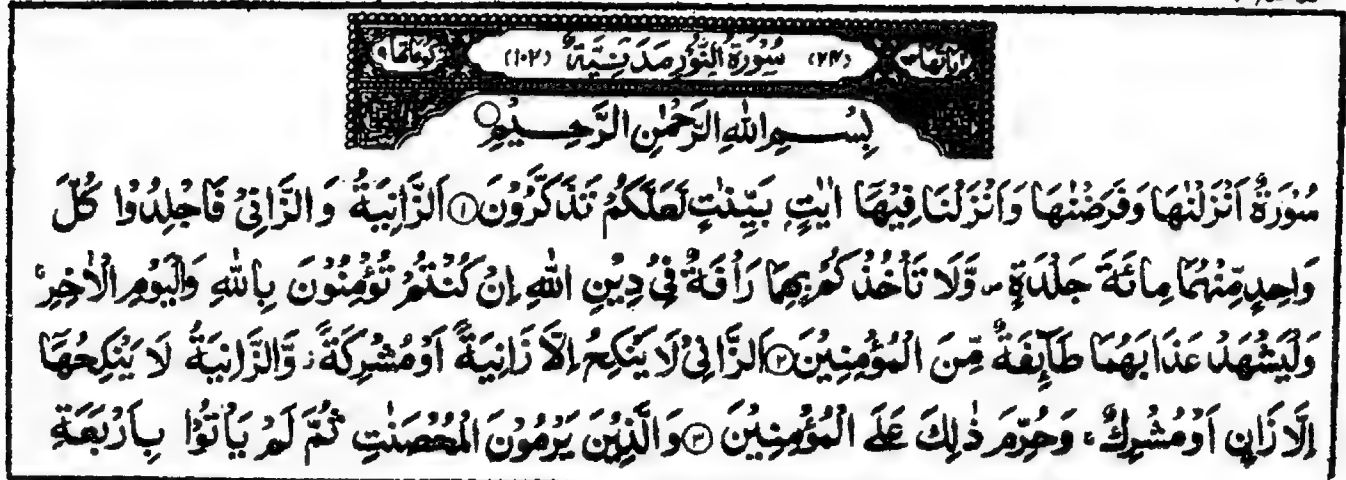 اٰیاتها (۲۴) سُوْرَةُ النُّوْرِ مَدَنِيَّةٌ (۱۰۲) رکوعاتها ۹
بِسْمِ اللهِ الرَّحْمٰنِ الرَّحِيْمِ
سُوْرَةٌ اَنْزَلْنٰهَا وَفَرَضْنٰهَا وَاَنْزَلْنَا فِيْهَا اٰيٰتٍۭ بَيِّنٰتٍ لَّعَلَّكُمْ تَذَكَّرُوْنَ ۱ اَلزَّانِيَةُ وَ الزَّانِيْ فَاجْلِدُوْا كُلَّ
وَاحِدٍ مِّنْهُمَا مِائَةَ جَلْدَةٍ ۪ وَّلَا تَاْخُذْكُمْ بِهِمَا رَاْفَةٌ فِيْ دِيْنِ اللهِ اِنْ كُنْتُمْ تُؤْمِنُوْنَ بِاللهِ وَالْيَوْمِ الْاٰخِرِ ۚ
وَلْيَشْهَدْ عَذَابَهُمَا طَآئِفَةٌ مِّنَ الْمُؤْمِنِيْنَ ۲ اَلزَّانِيْ لَا يَنْكِحُ اِلَّا زَانِيَةً اَوْ مُشْرِكَةً ؗ وَّالزَّانِيَةُ لَا يَنْكِحُهَاۤ
اِلَّا زَانٍ اَوْ مُشْرِكٌ ۚ وَحُرِّمَ ذٰلِكَ عَلَى الْمُؤْمِنِيْنَ ۳ وَالَّذِيْنَ يَرْمُوْنَ الْمُحْصَنٰتِ ثُمَّ لَمْ يَاْتُوْا بِاَرْبَعَةِ